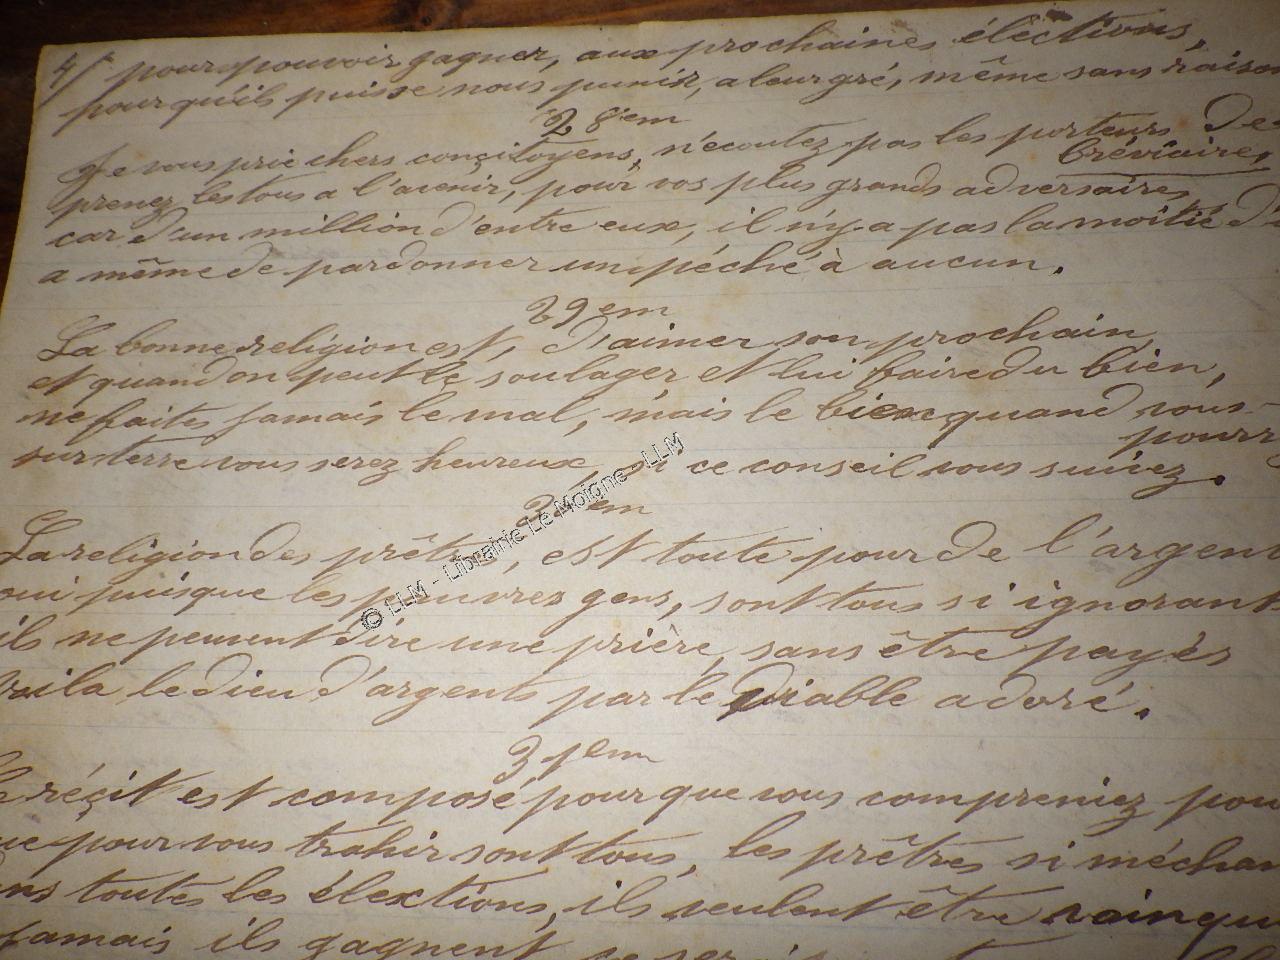 4/ pour pouvoir gagner, aux prochaines éléctions,
pourqu'ils puisse nous punir, a leur gré, même sans raison
28em
Je vous prie chers conçitoyens, n'écoutez pas les porteurs De
bréviaire,
prenez les tous a l'avenir, pour vos plus grands adversaires,
car d'un million d'entre eux, il n'y a pas la moitié d'
a même de pardonner un péché à aucun.
29em
La bonne religion est, d'aimer son prochain,
et quand on peut le soulager et lui faire du bien,
ne faites jamais le mal, mais le bien quand vous
pourr
sur terre vous serez heureux, si ce conseil vous suivez.
em
La religion des prêtres, est toute pour de l'argent
oui puisque les pauvres gens, sont tous si ignorant
ils ne peuvent dire une prière, sans être payés
voila le dieu d'argents par le Diable adoré.
31em
réçit est composé pour que vous compreniez pou
que pour vous trahir sont tous, les prêtres si méchan
toutes les éléctions, ils veulent être vainqu
jamais ils gagnent
© LLM - Librairie Le Moigne - LLM